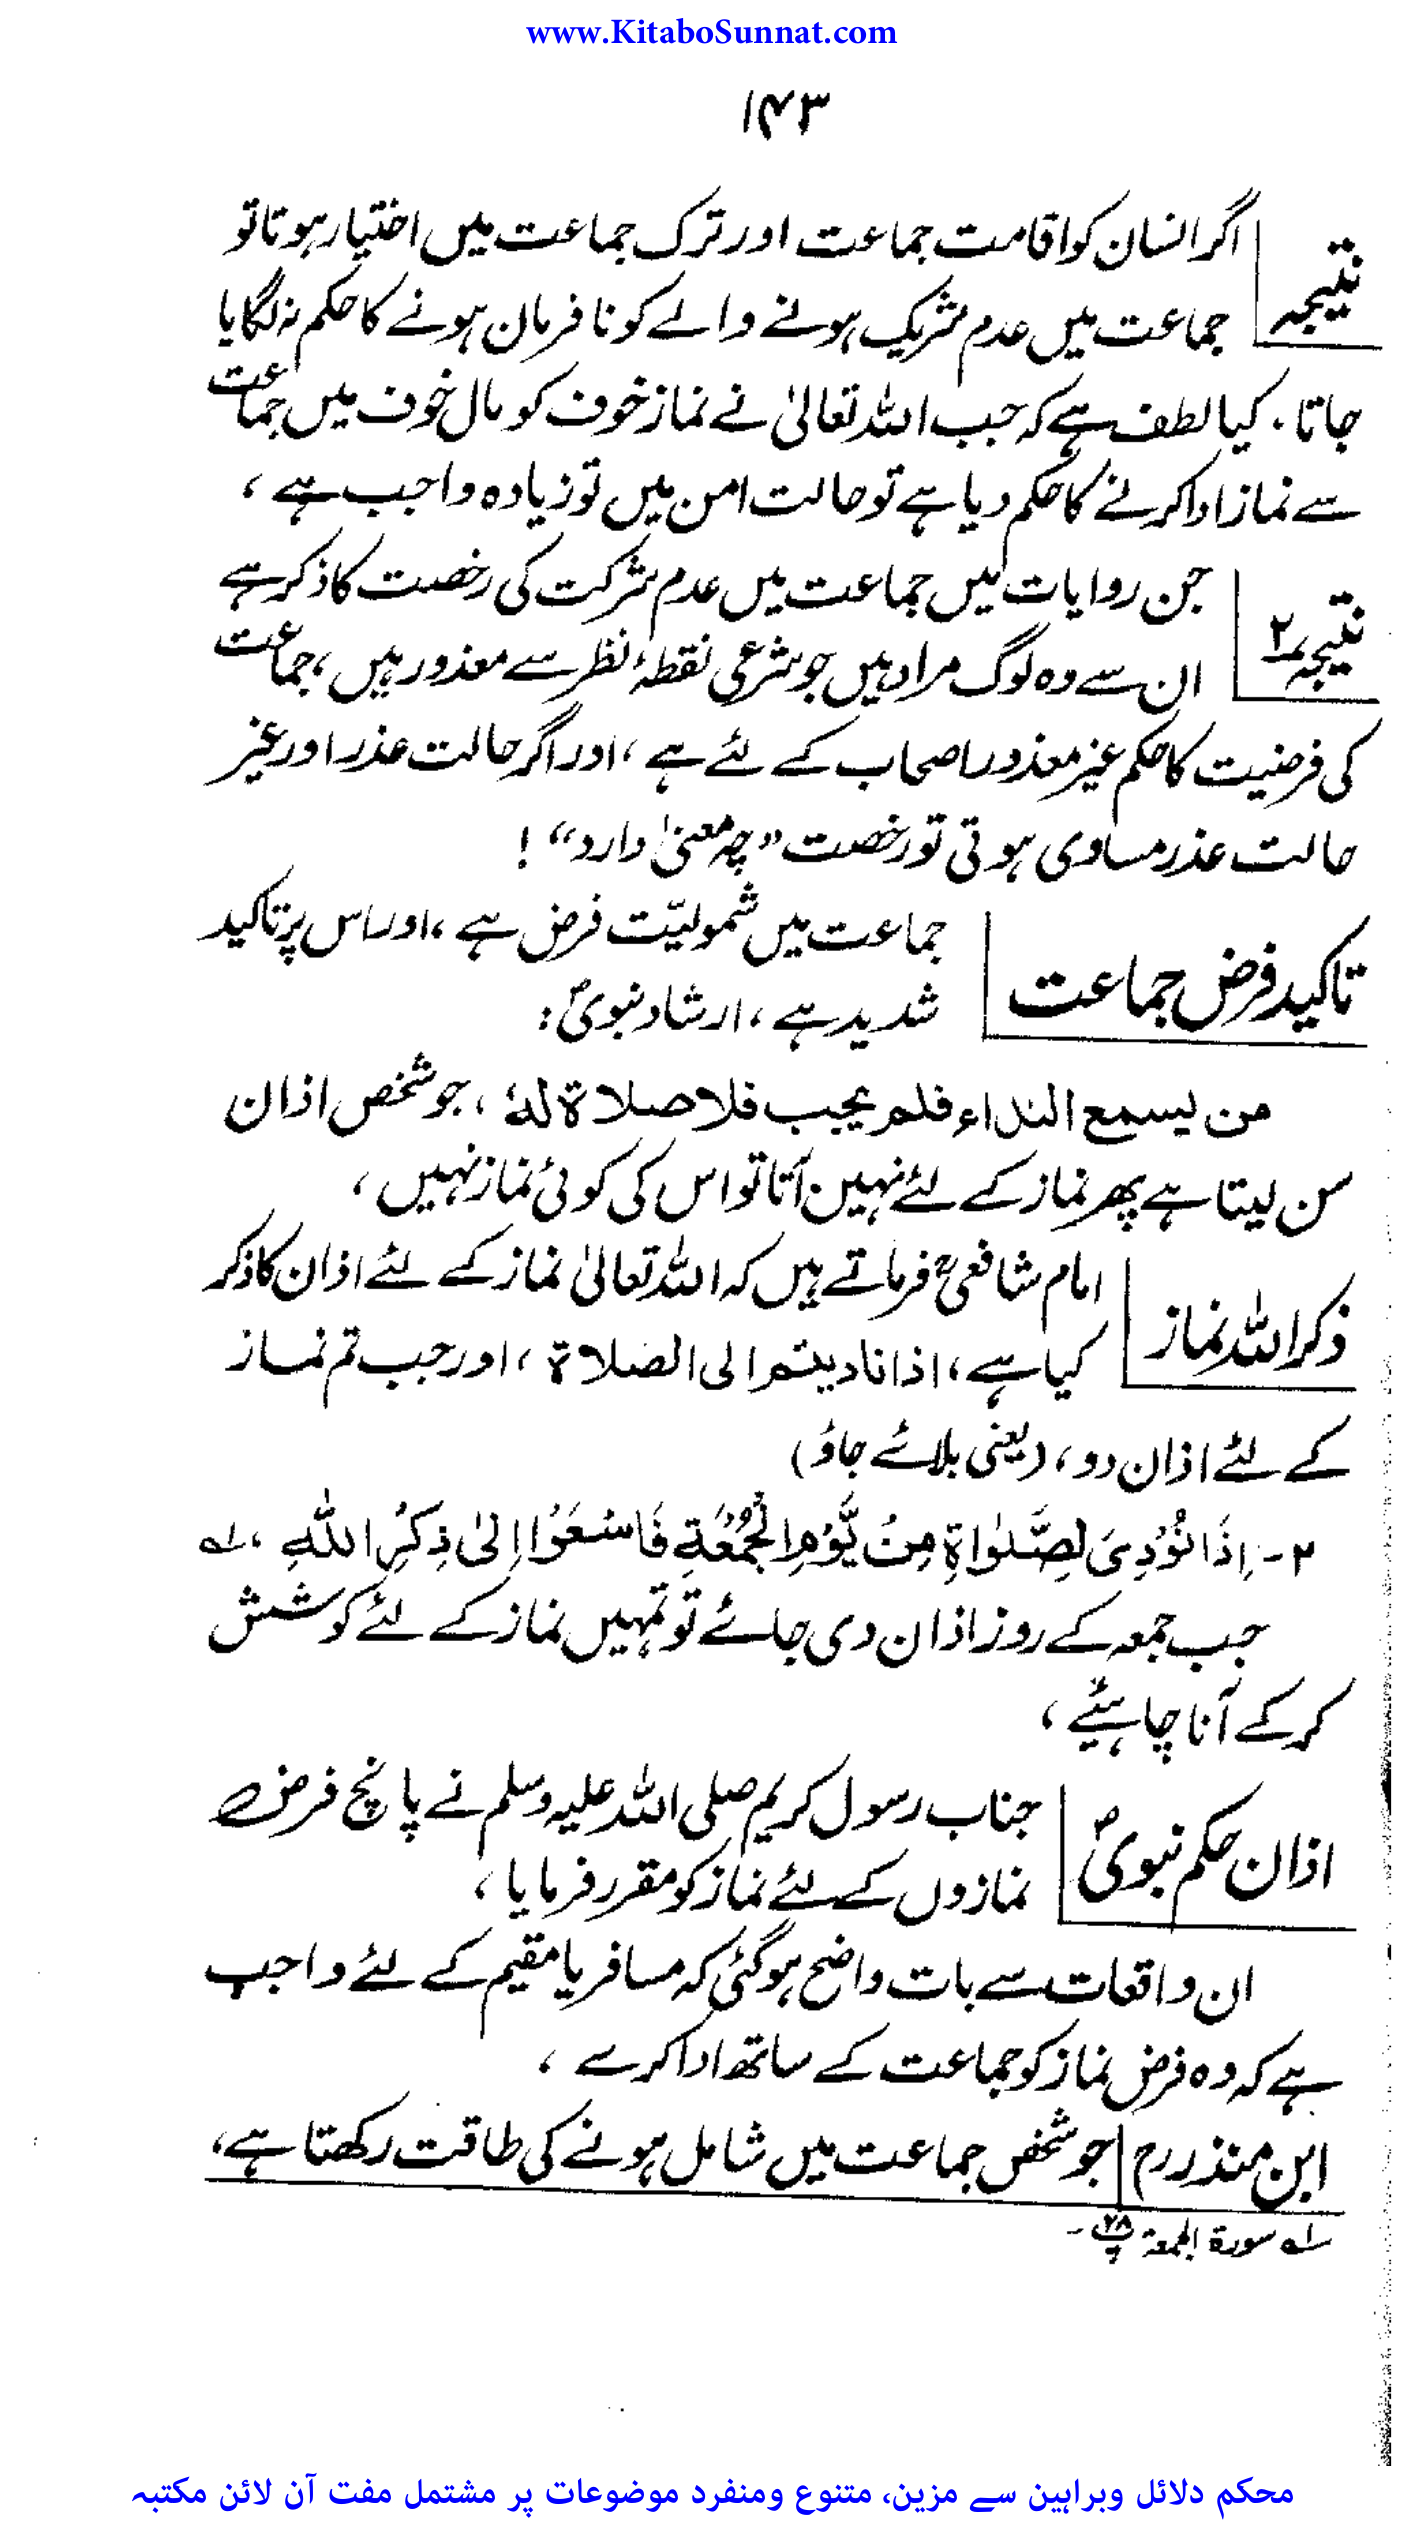 www.KitaboSunnat.com
۱۴۳
نتیجہ
اگر انسان کو اقامت جماعت اور ترک جماعت میں اختیار ہوتا تو
جماعت میں عدم شریک ہونے والے کو نافرمان ہونے کا حکم نہ لگایا
جاتا۔ کیا لطف ہے کہ جب اللہ تعالیٰ نے نماز خوف کو حال خوف میں جماعت
سے نماز ادا کرنے کا حکم دیا ہے تو حالت امن میں تو زیادہ واجب ہے،
نتیجہ ۲
جن روایات میں جماعت میں عدم شرکت کی رخصت کا ذکر ہے
ان سے وہ لوگ مراد ہیں جو شرعی نقطۂ نظر سے معذور ہیں، جماعت
کی فرضیت کا حکم غیر معذور اصحاب کے لئے ہے، اور اگر حالت عذر اور غیر
حالت عذر مساوی ہوتی تو رخصت ”چہ معنیٰ دارد“ !
تاکید فرض جماعت
جماعت میں شمولیّت فرض ہے، اور اس پر تاکید
شدید ہے، ارشاد نبویؐ:
من یسمع النداء فلم یجب فلا صلاۃ لہٗ، جو شخص اذان
سن لیتا ہے پھر نماز کے لئے نہیں آتا تو اس کی کوئی نماز نہیں،
ذکر اللہ نماز
امام شافعیؒ فرماتے ہیں کہ اللہ تعالیٰ نماز کے لئے اذان کا ذکر
کیا ہے، اذا نادیتم الی الصلاۃ، اور جب تم نماز
کے لئے اذان دو، (یعنی بلائے جاؤ)
۲۔ اِذَا نُوْدِیَ لِصَّلٰوۃِ مِنْ یَّوْمِ الْجُمُعَۃِ فَاسْعَوْا اِلیٰ ذِکْرِ اللّٰہِ، لہ
جب جمعہ کے روز اذان دی جائے تو تمہیں نماز کے لئے کوشش
کر کے آنا چاہئیے،
اذان حکم نبویؐ
جناب رسول کریم صلی اللہ علیہ وسلم نے پانچ فرض
نمازوں کے لئے نماز کو مقرر فرمایا،
ان واقعات سے بات واضح ہو گئی کہ مسافر یا مقیم کے لئے واجب
ہے کہ وہ فرض نماز کو جماعت کے ساتھ ادا کرے،
ابن منذر رح جو شخص جماعت میں شامل ہونے کی طاقت رکھتا ہے،
لہ سورۃ الجمعۃ پ ۲۸ ۔
محکم دلائل وبراہین سے مزین، متنوع ومنفرد موضوعات پر مشتمل مفت آن لائن مکتبہ